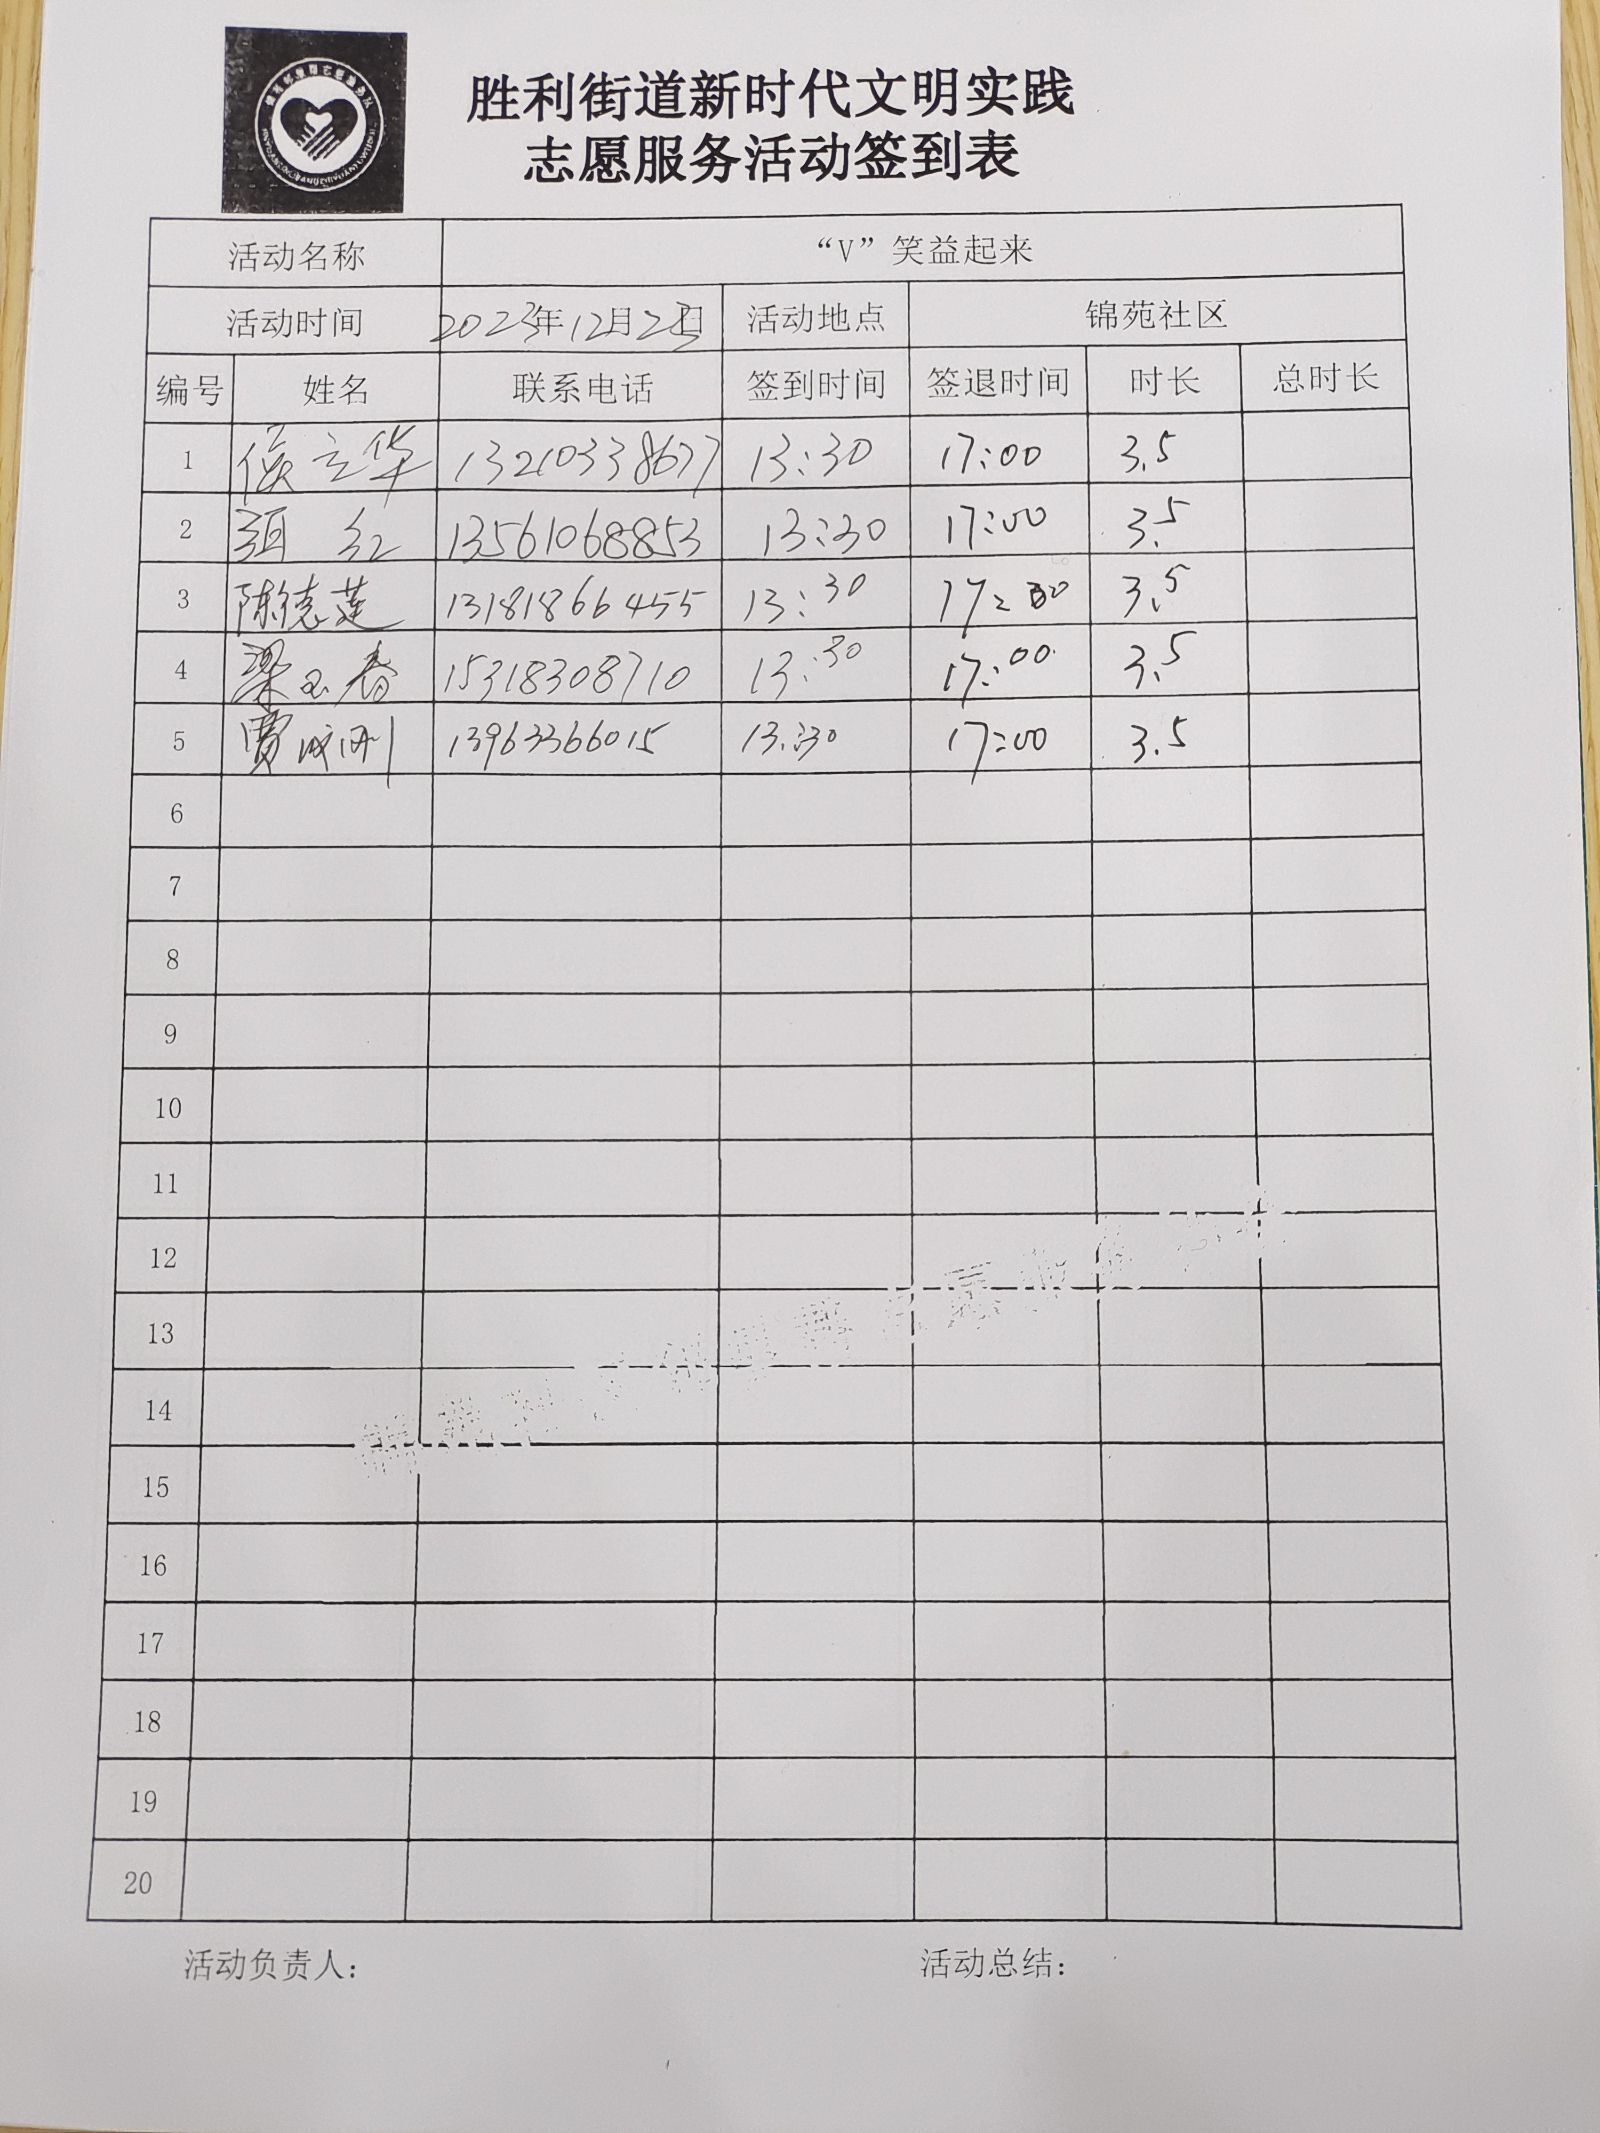 胜利街道新时代文明实践
志愿服务活动签到表
活动名称 “V”笑益起来
活动时间 2023年12月23日 活动地点 锦苑社区
编号 姓名 联系电话 签到时间 签退时间 时长 总时长
1 侯立华 13210338677 13:30 17:00 3.5
2 红 13561068853 13:30 17:00 3.5
3 陈德莲 13181866455 13:30 17:00 3.5
4 梁玉春 15318308710 13:30 17:00 3.5
5 贾成刚 13963366015 13:30 17:00 3.5
6
7
8
9
10
11
12
13
14
15
16
17
18
19
20
活动负责人： 活动总结：